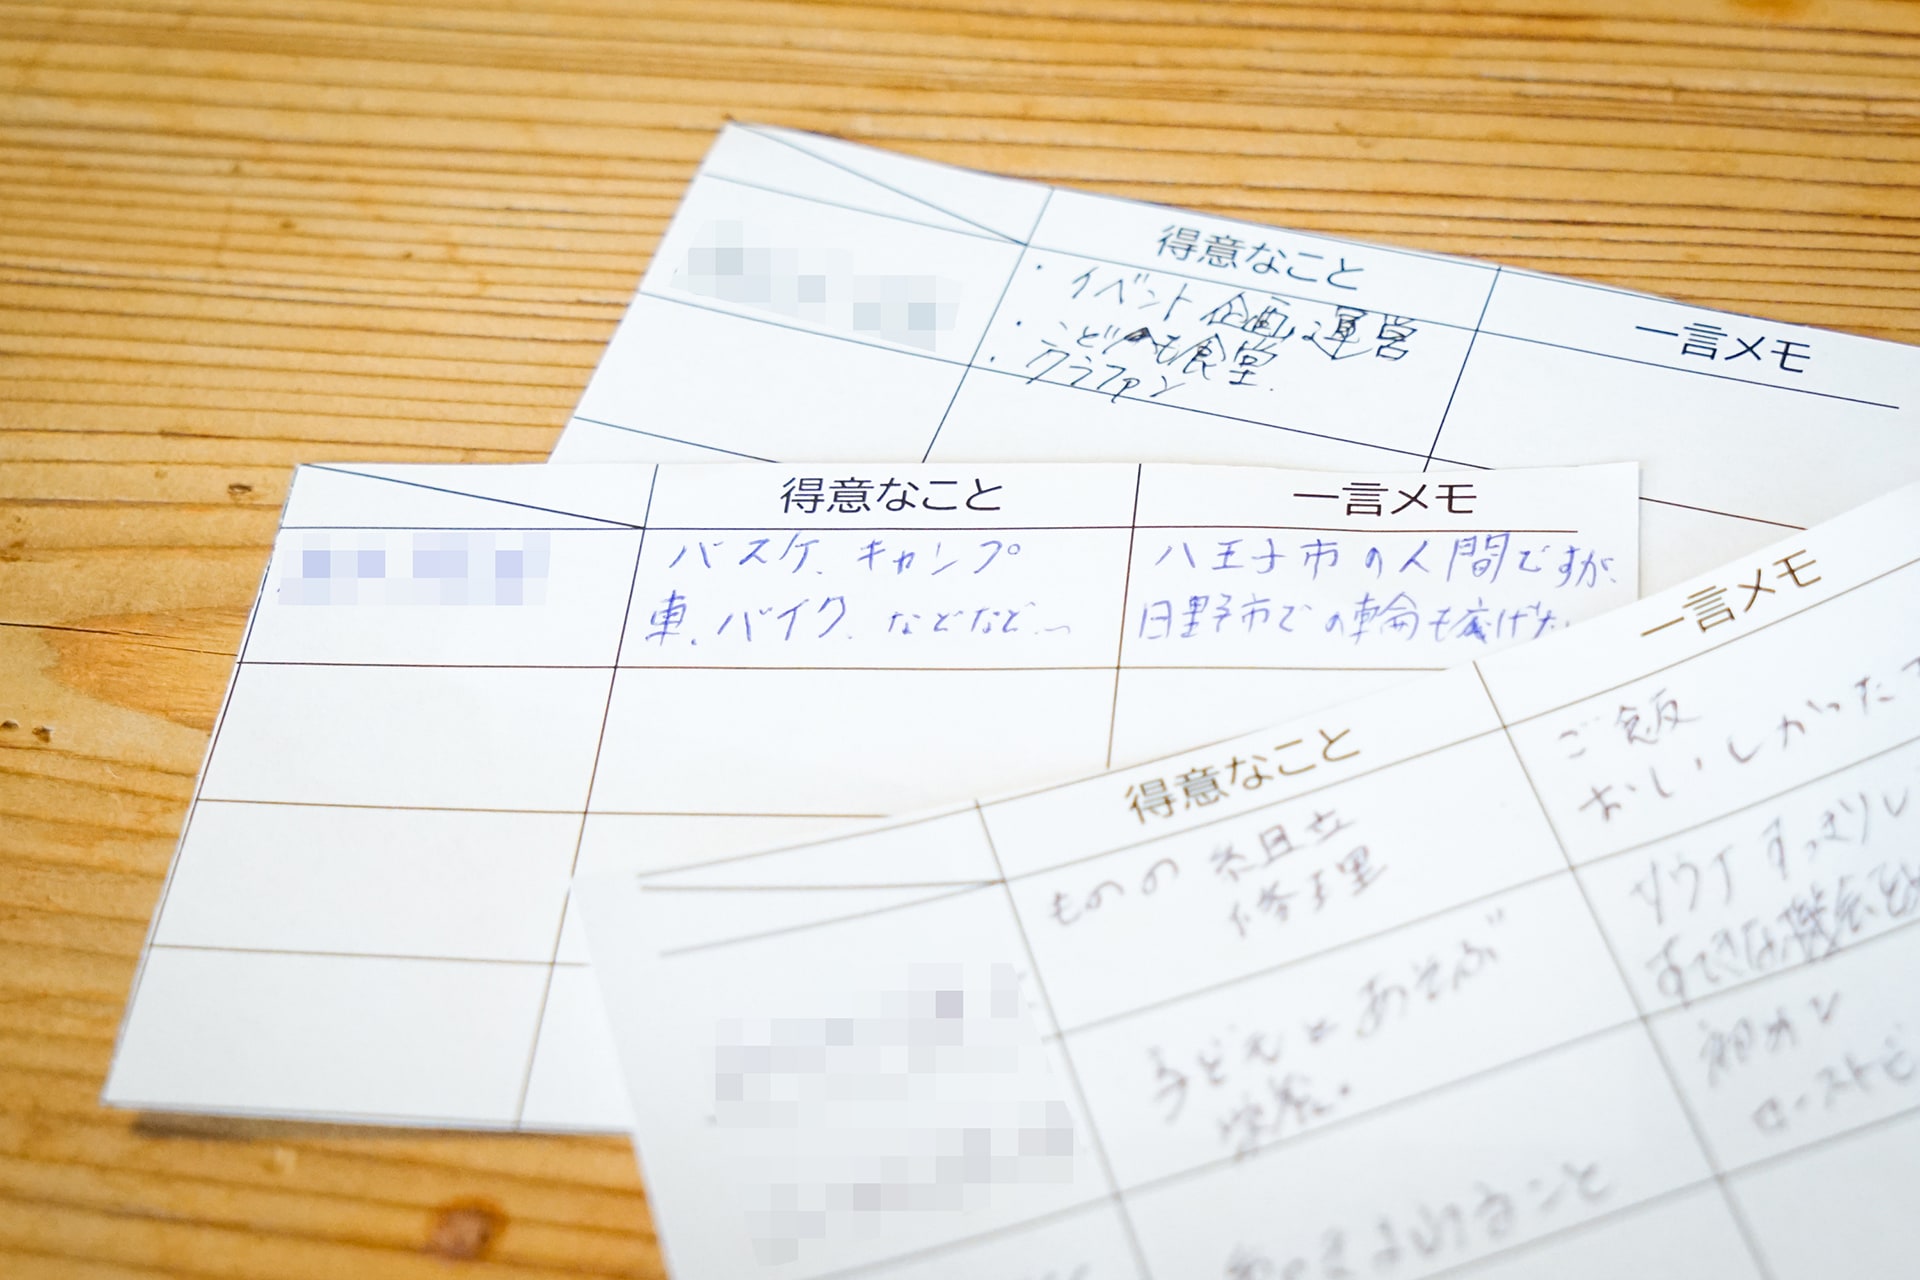 得意なこと
一言メモ
・イベント企画、運営
・こども食堂
・クラファン
得意なこと
一言メモ
バスケ、キャンプ
車、バイク、などなど…
八王子市の人間ですが、
日野市での輪も広げた
得意なこと
一言メモ
ものの組立
修理
ご飯
おいしかった
子どもとあそぶ
サウナすっきりし
すてきな機会を
ロースト